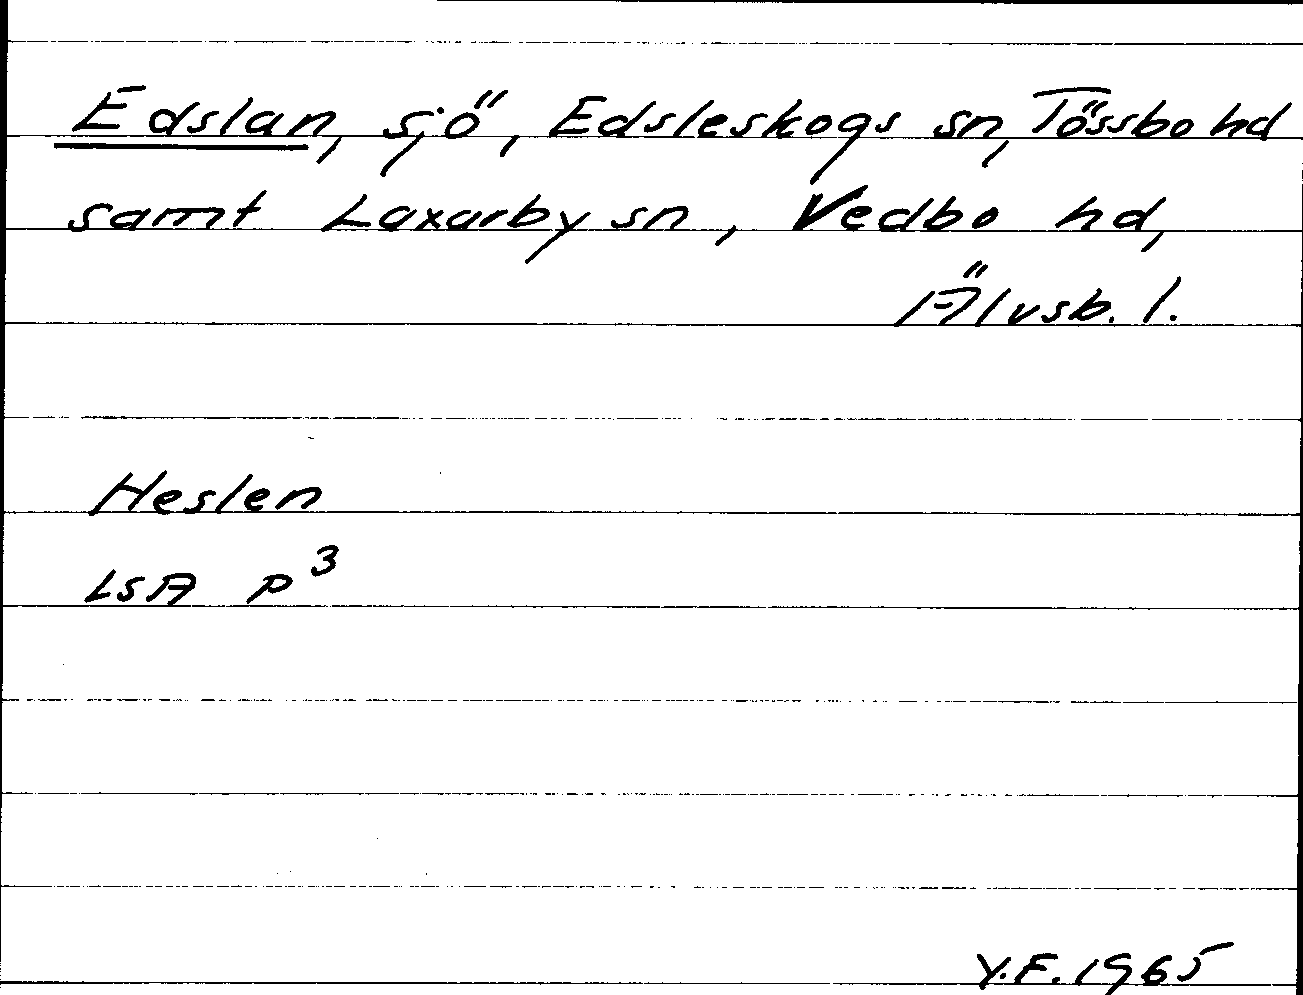 Edslan, sjö, Edsleskogs sn, Tössbo hd
samt Laxarby sn, Vedbo hd,
Älvsb. l.
Heslen
LSA P³
Y.F. 1965